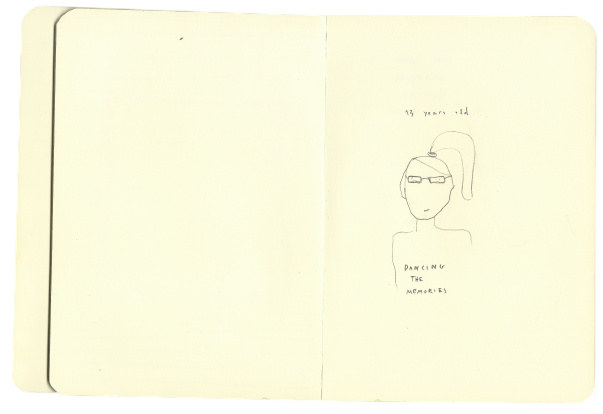 13 years old
DANCING
THE
MEMORIES